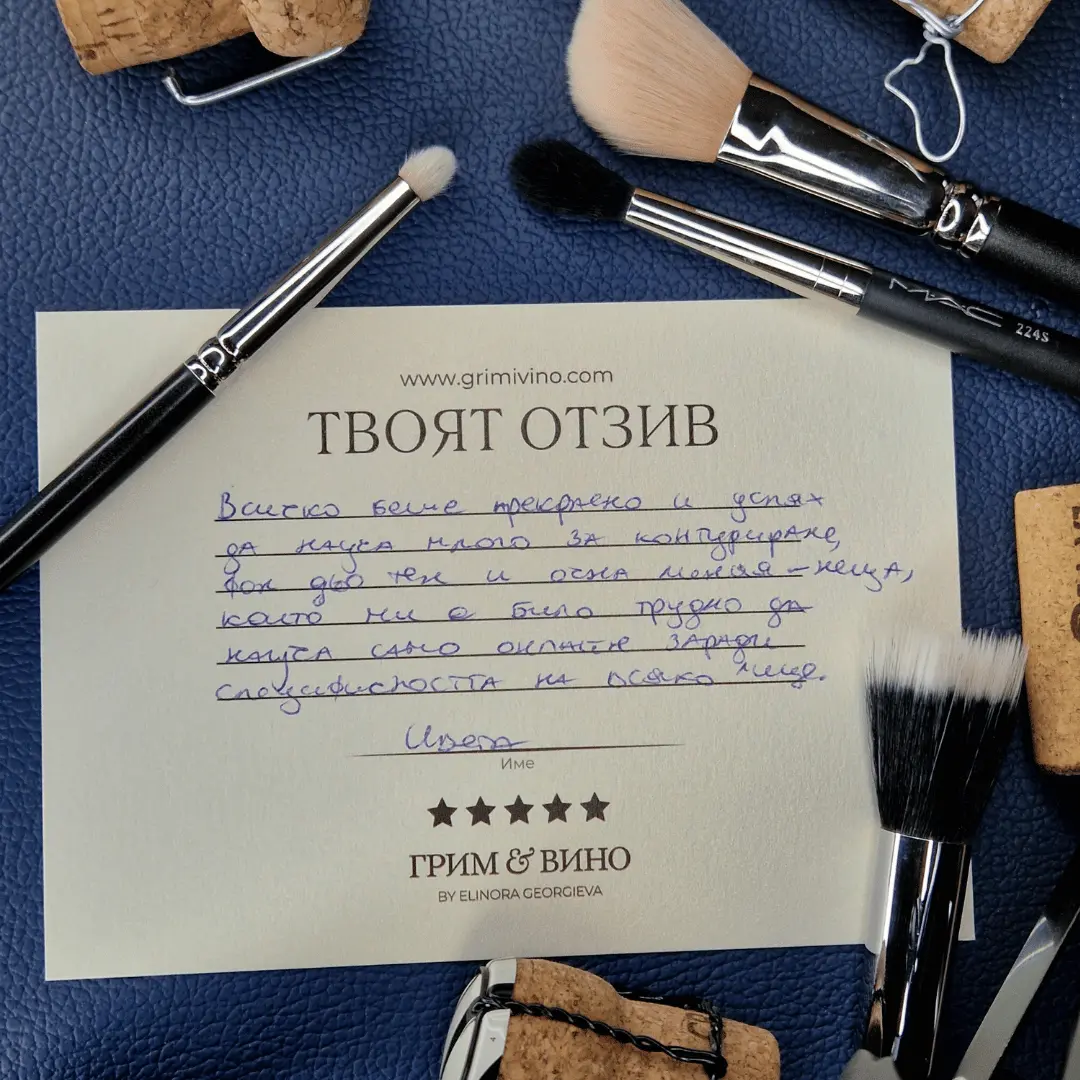 MAC 224S
www.grimivino.com
ТВОЯТ ОТЗИВ
Всичко беше прекрасно и успях
да науча много за контуриране,
фон дьо тен и очна линия – неща,
които ми е било трудно да
науча само онлайн заради
специфичността на всяко лице.
Цвета
Име
ГРИМ & ВИНО
BY ELINORA GEORGIEVA